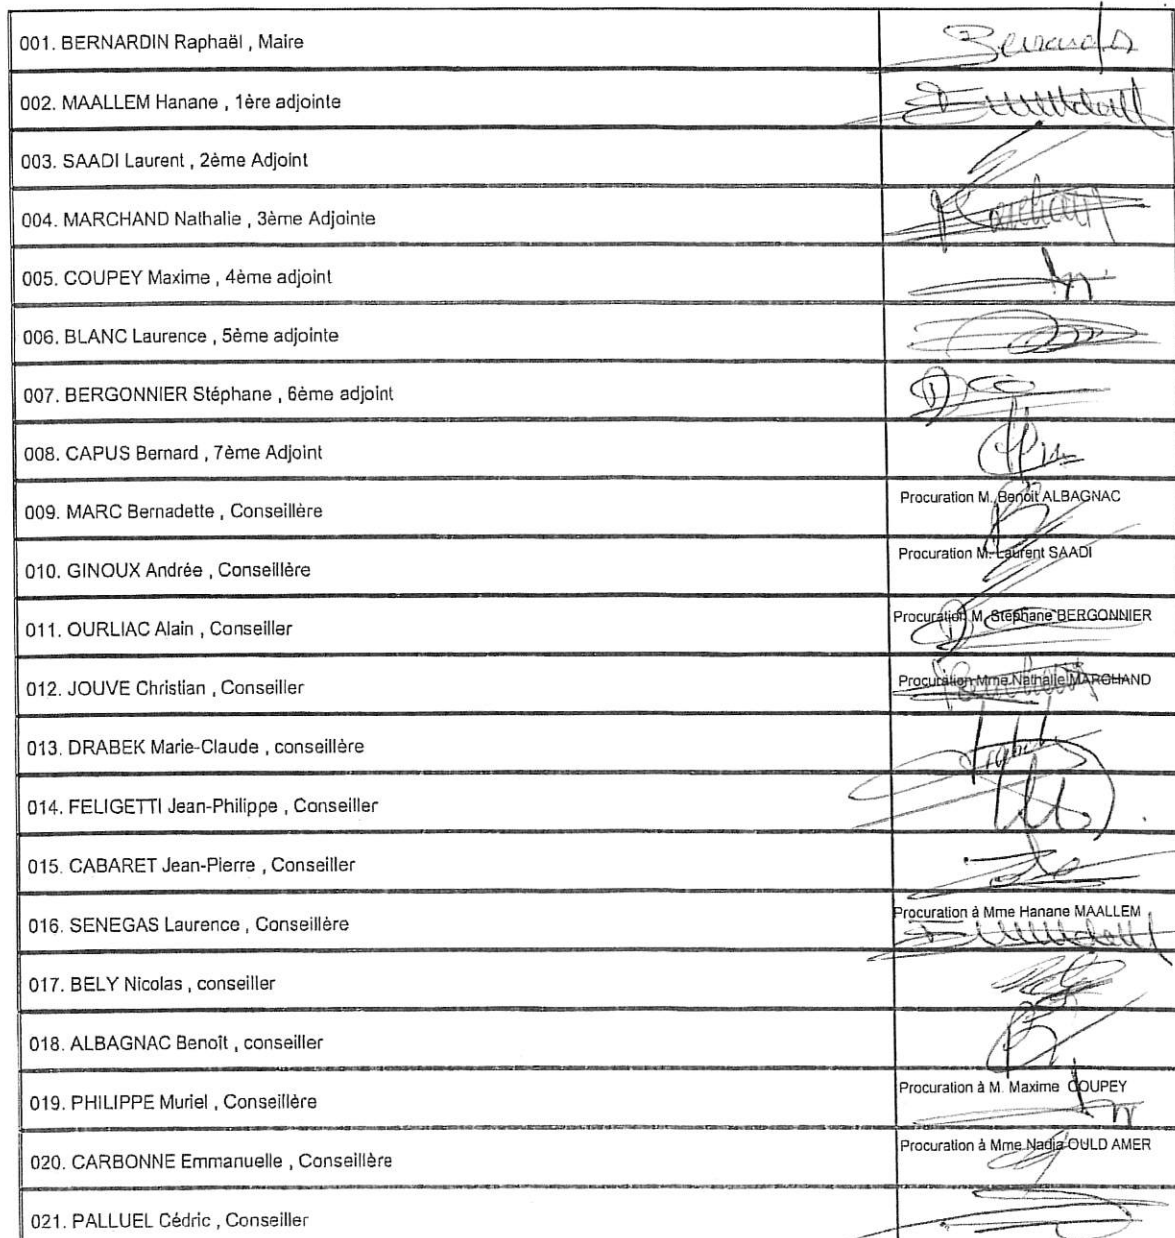 001. BERNARDIN Raphaël , Maire
002. MAALLEM Hanane , 1ère adjointe
003. SAADI Laurent , 2ème Adjoint
004. MARCHAND Nathalie , 3ème Adjointe
005. COUPEY Maxime , 4ème adjoint
006. BLANC Laurence , 5ème adjointe
007. BERGONNIER Stéphane , 6ème adjoint
008. CAPUS Bernard , 7ème Adjoint
009. MARC Bernadette , Conseillère
Procuration M. Benoît ALBAGNAC
010. GINOUX Andrée , Conseillère
Procuration M. Laurent SAADI
011. OURLIAC Alain , Conseiller
Procuration M. Stéphane BERGONNIER
012. JOUVE Christian , Conseiller
Procuration Mme Nathalie MARCHAND
013. DRABEK Marie-Claude , conseillère
014. FELIGETTI Jean-Philippe , Conseiller
015. CABARET Jean-Pierre , Conseiller
016. SENEGAS Laurence , Conseillère
Procuration à Mme Hanane MAALLEM
017. BELY Nicolas , conseiller
018. ALBAGNAC Benoît , conseiller
019. PHILIPPE Muriel , Conseillère
Procuration à M. Maxime COUPEY
020. CARBONNE Emmanuelle , Conseillère
Procuration à Mme Nadia OULD AMER
021. PALLUEL Cédric , Conseiller